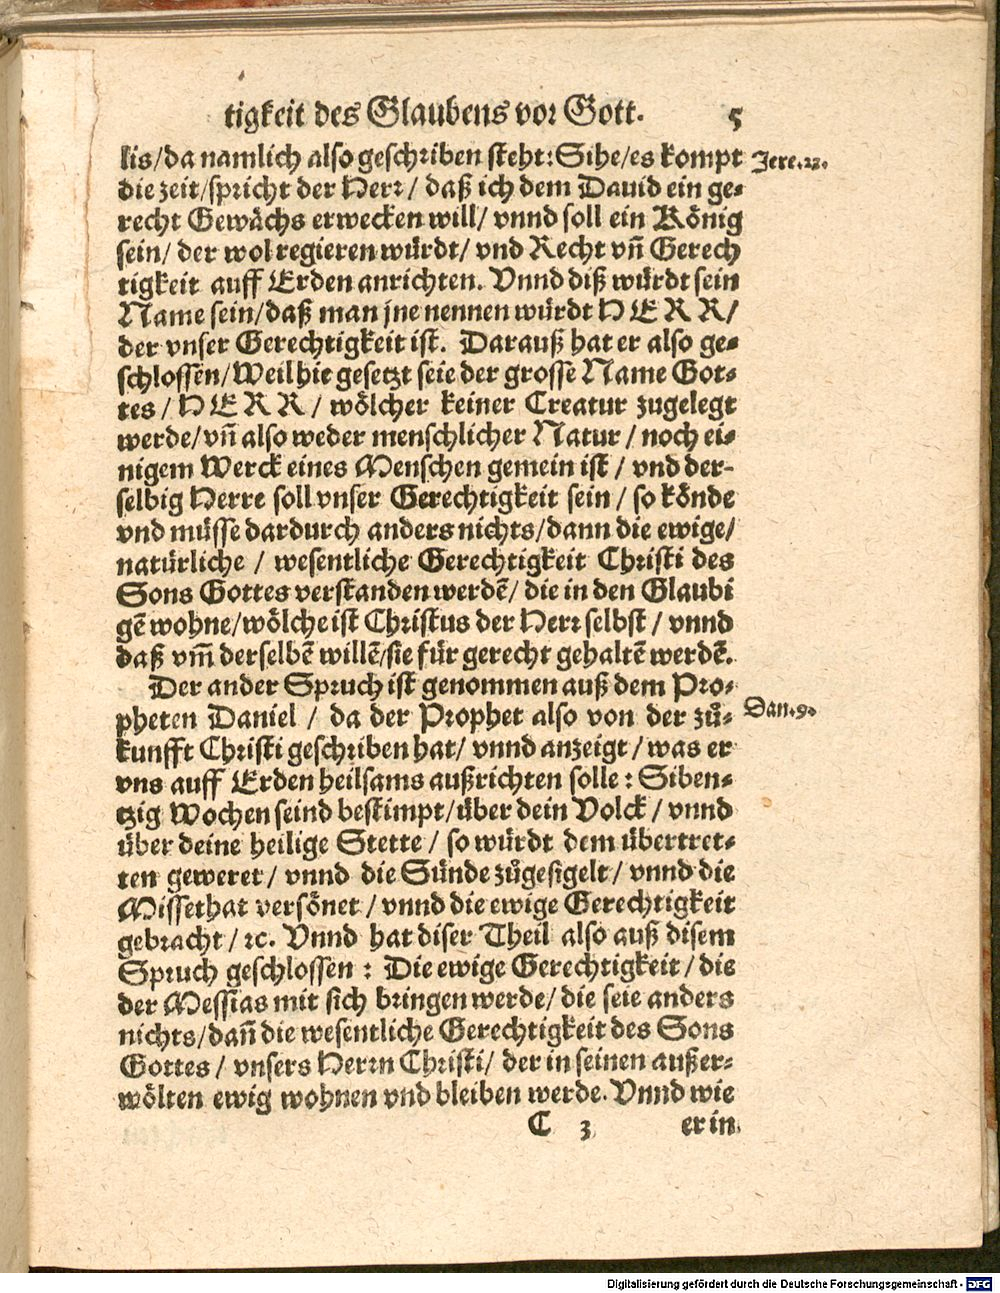 tigkeit des Glaubens vor Gott. 5
lis/da namlich also geschriben steht: Sihe/es kompt Jere.23.
die zeit/spricht der Herr/ daß ich dem Dauid ein ge-
recht Gewächs erwecken will/ vnnd soll ein König
sein/ der wol regieren würdt/ vnd Recht vñ Gerech
tigkeit auff Erden anrichten. Vnnd diß würdt sein
Name sein/daß man jne nennen würdt HERR/
der vnser Gerechtigkeit ist. Darauß hat er also ge-
schlossen/Weil hie gesetzt seie der grosse Name Got-
tes / HERR / wölcher keiner Creatur zugelegt
werde/vñ also weder menschlicher Natur / noch ei-
nigem Werck eines Menschen gemein ist / vnd der-
selbig Herre soll vnser Gerechtigkeit sein / so könde
vnd müsse dardurch anders nichts/dann die ewige/
natürliche / wesentliche Gerechtigkeit Christi des
Sons Gottes verstanden werdẽ/ die in den Glaubi
gẽ wohne/wölche ist Christus der Herr selbst / vnnd
daß vm̃ derselbẽ willẽ/sie für gerecht gehaltẽ werdẽ.
Der ander Spruch ist genommen auß dem Pro-
pheten Daniel / da der Prophet also von der zů- Dan.9.
kunfft Christi geschriben hat/ vnnd anzeigt / was er
vns auff Erden heilsams außrichten solle : Siben-
tzig Wochen seind bestimpt/über dein Volck / vnnd
über deine heilige Stette / so würdt dem übertret-
ten geweret / vnnd die Sünde zůgesigelt / vnnd die
Missethat versönet / vnnd die ewige Gerechtigkeit
gebracht / ꝛc. Vnnd hat diser Theil also auß disem
Spruch geschlossen : Die ewige Gerechtigkeit / die
der Messias mit sich bringen werde/ die seie anders
nichts/dañ die wesentliche Gerechtigkeit des Sons
Gottes / vnsers Herrn Christi/ der in seinen außer-
wölten ewig wohnen vnd bleiben werde. Vnnd wie
C 3 er in
Digitalisierung gefördert durch die Deutsche Forschungsgemeinschaft - DFG